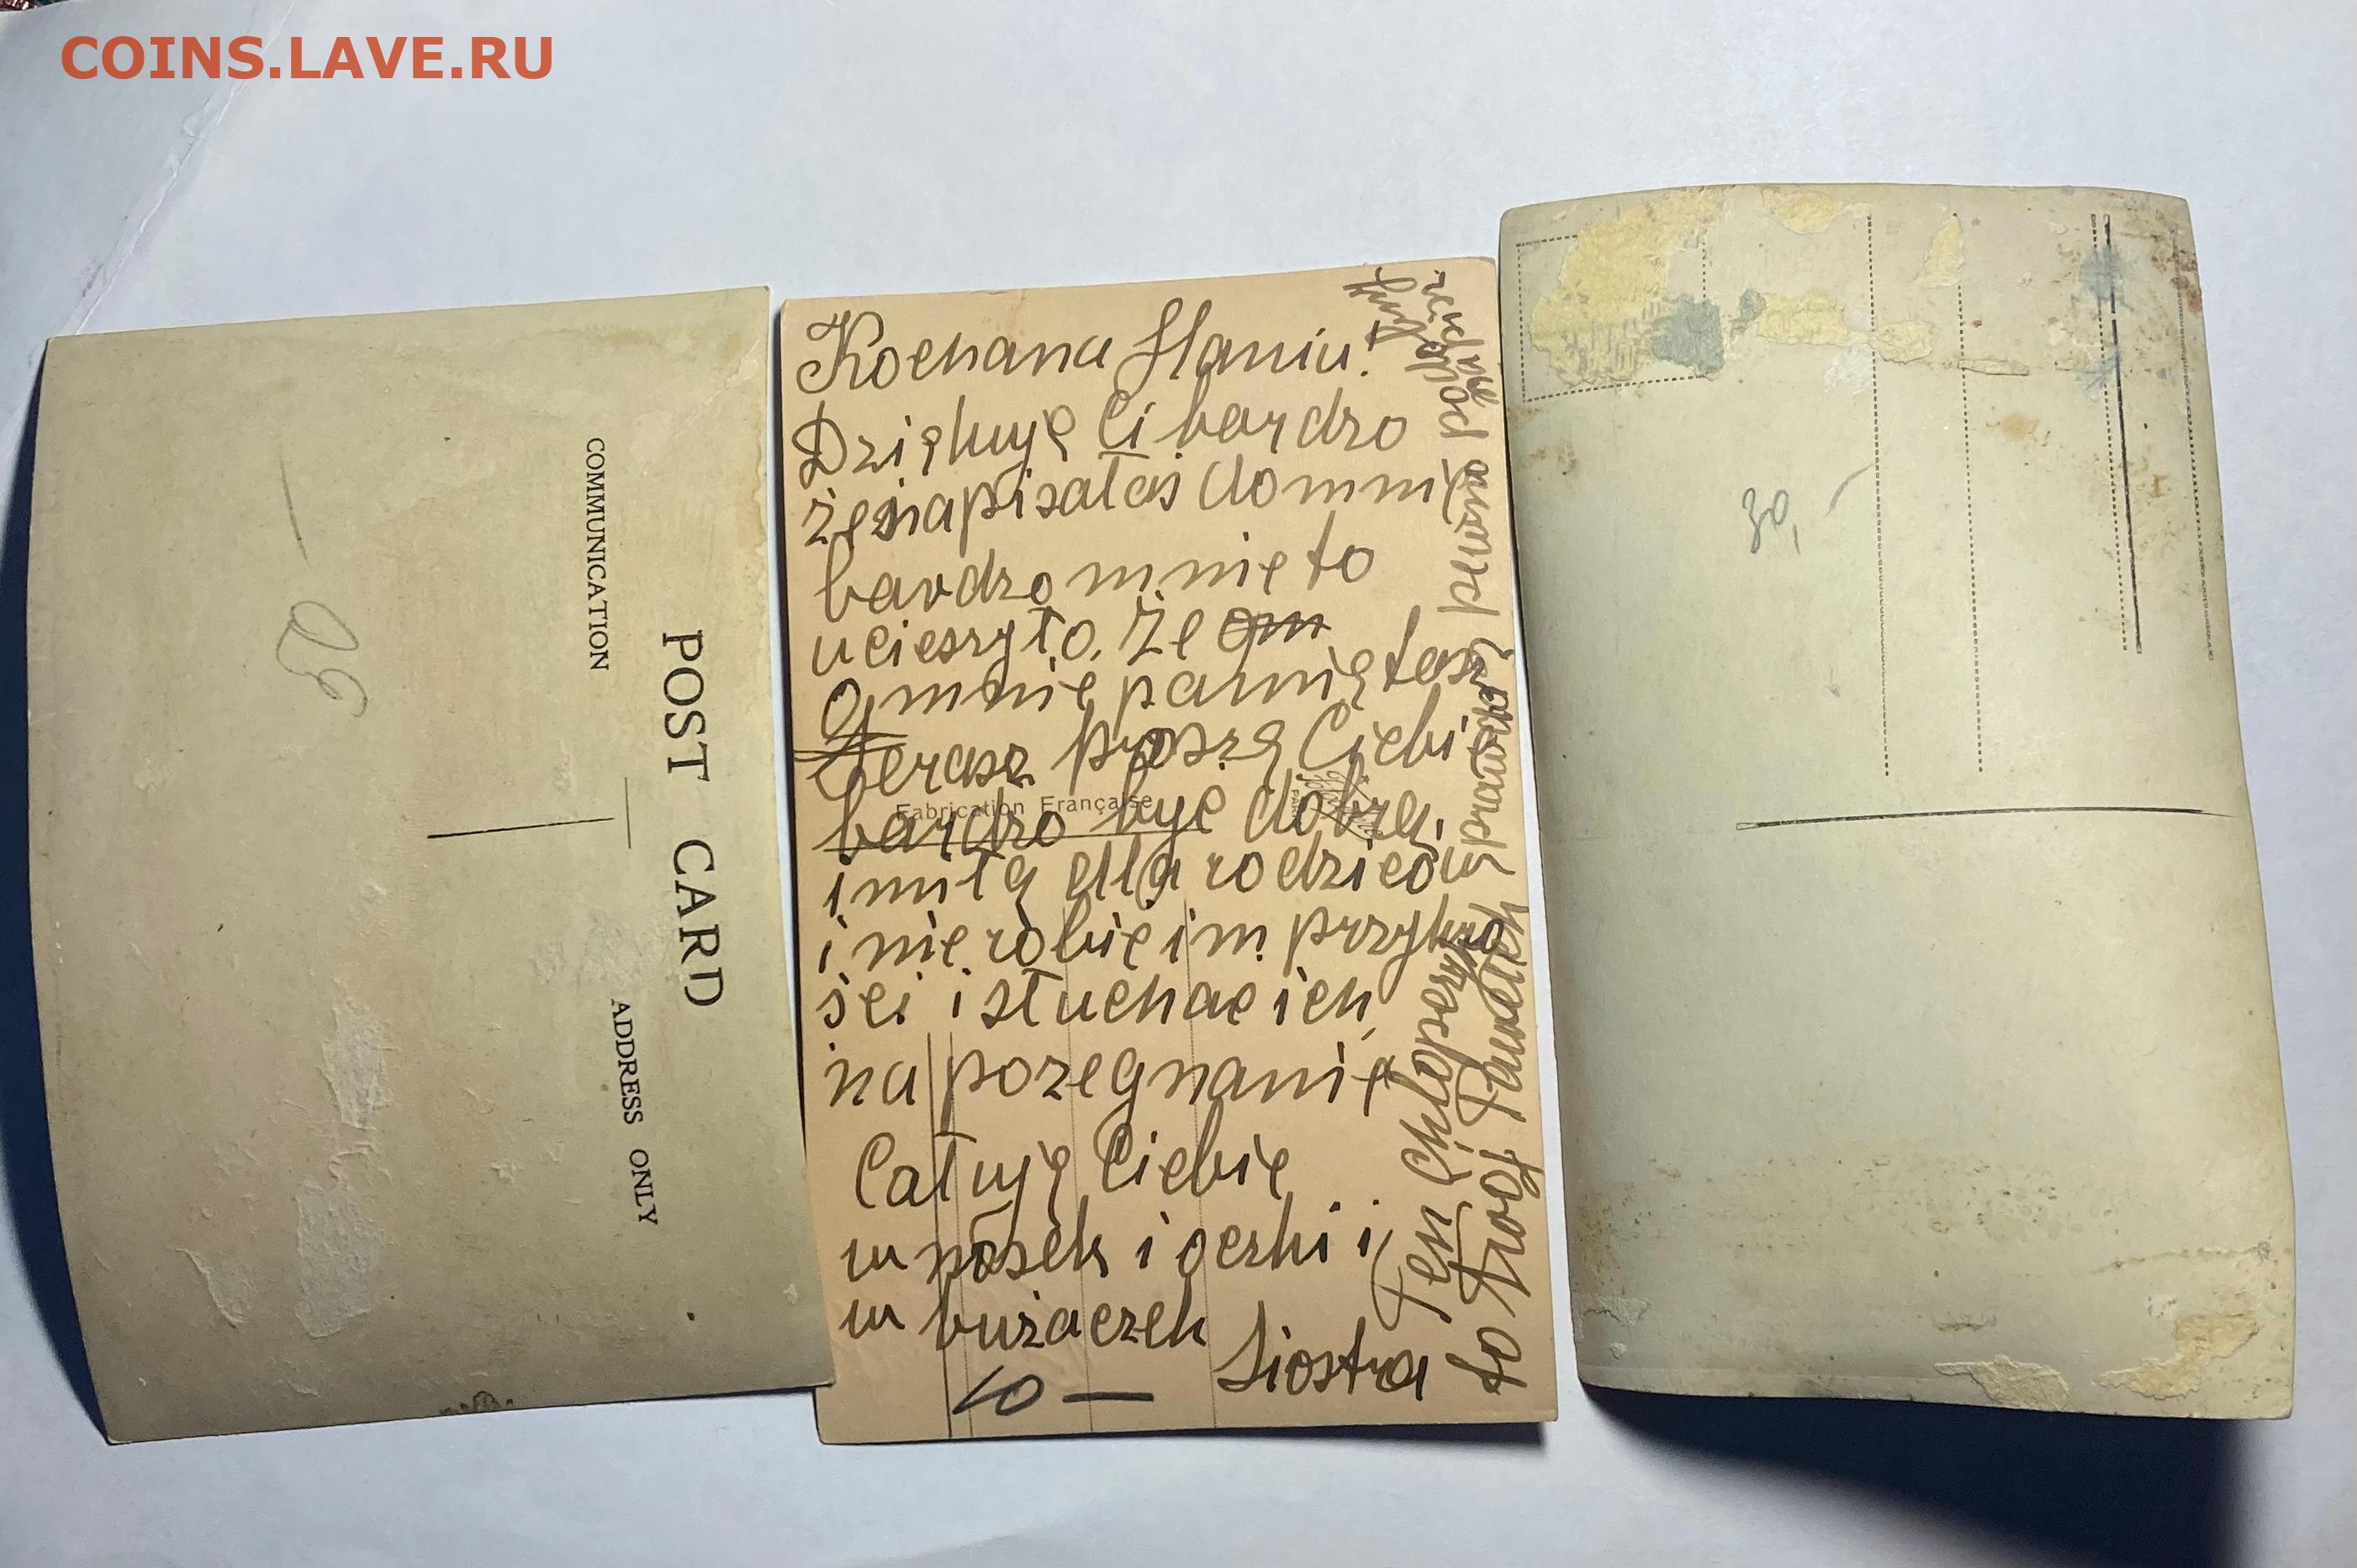 COINS.LAVE.RU
POST CARD
COMMUNICATION
ADDRESS ONLY
Kochana Haniu!
Dziękuję Ci bardzo
że napisałaś do mnie
bardzo mnie to
ucieszyło. że
o mnie pamiętasz
teraz proszę Ciebi
Fabrication Française
bardzo być dobrą
i miłą dla rodziców
i nie robić im przykro
ści i słuchać ich
na pożegnanie
Całuję Ciebie
w nosek i oczki i
w buziaczek
Siostra
10 —
Ten chłopczyk
to Twój
30,